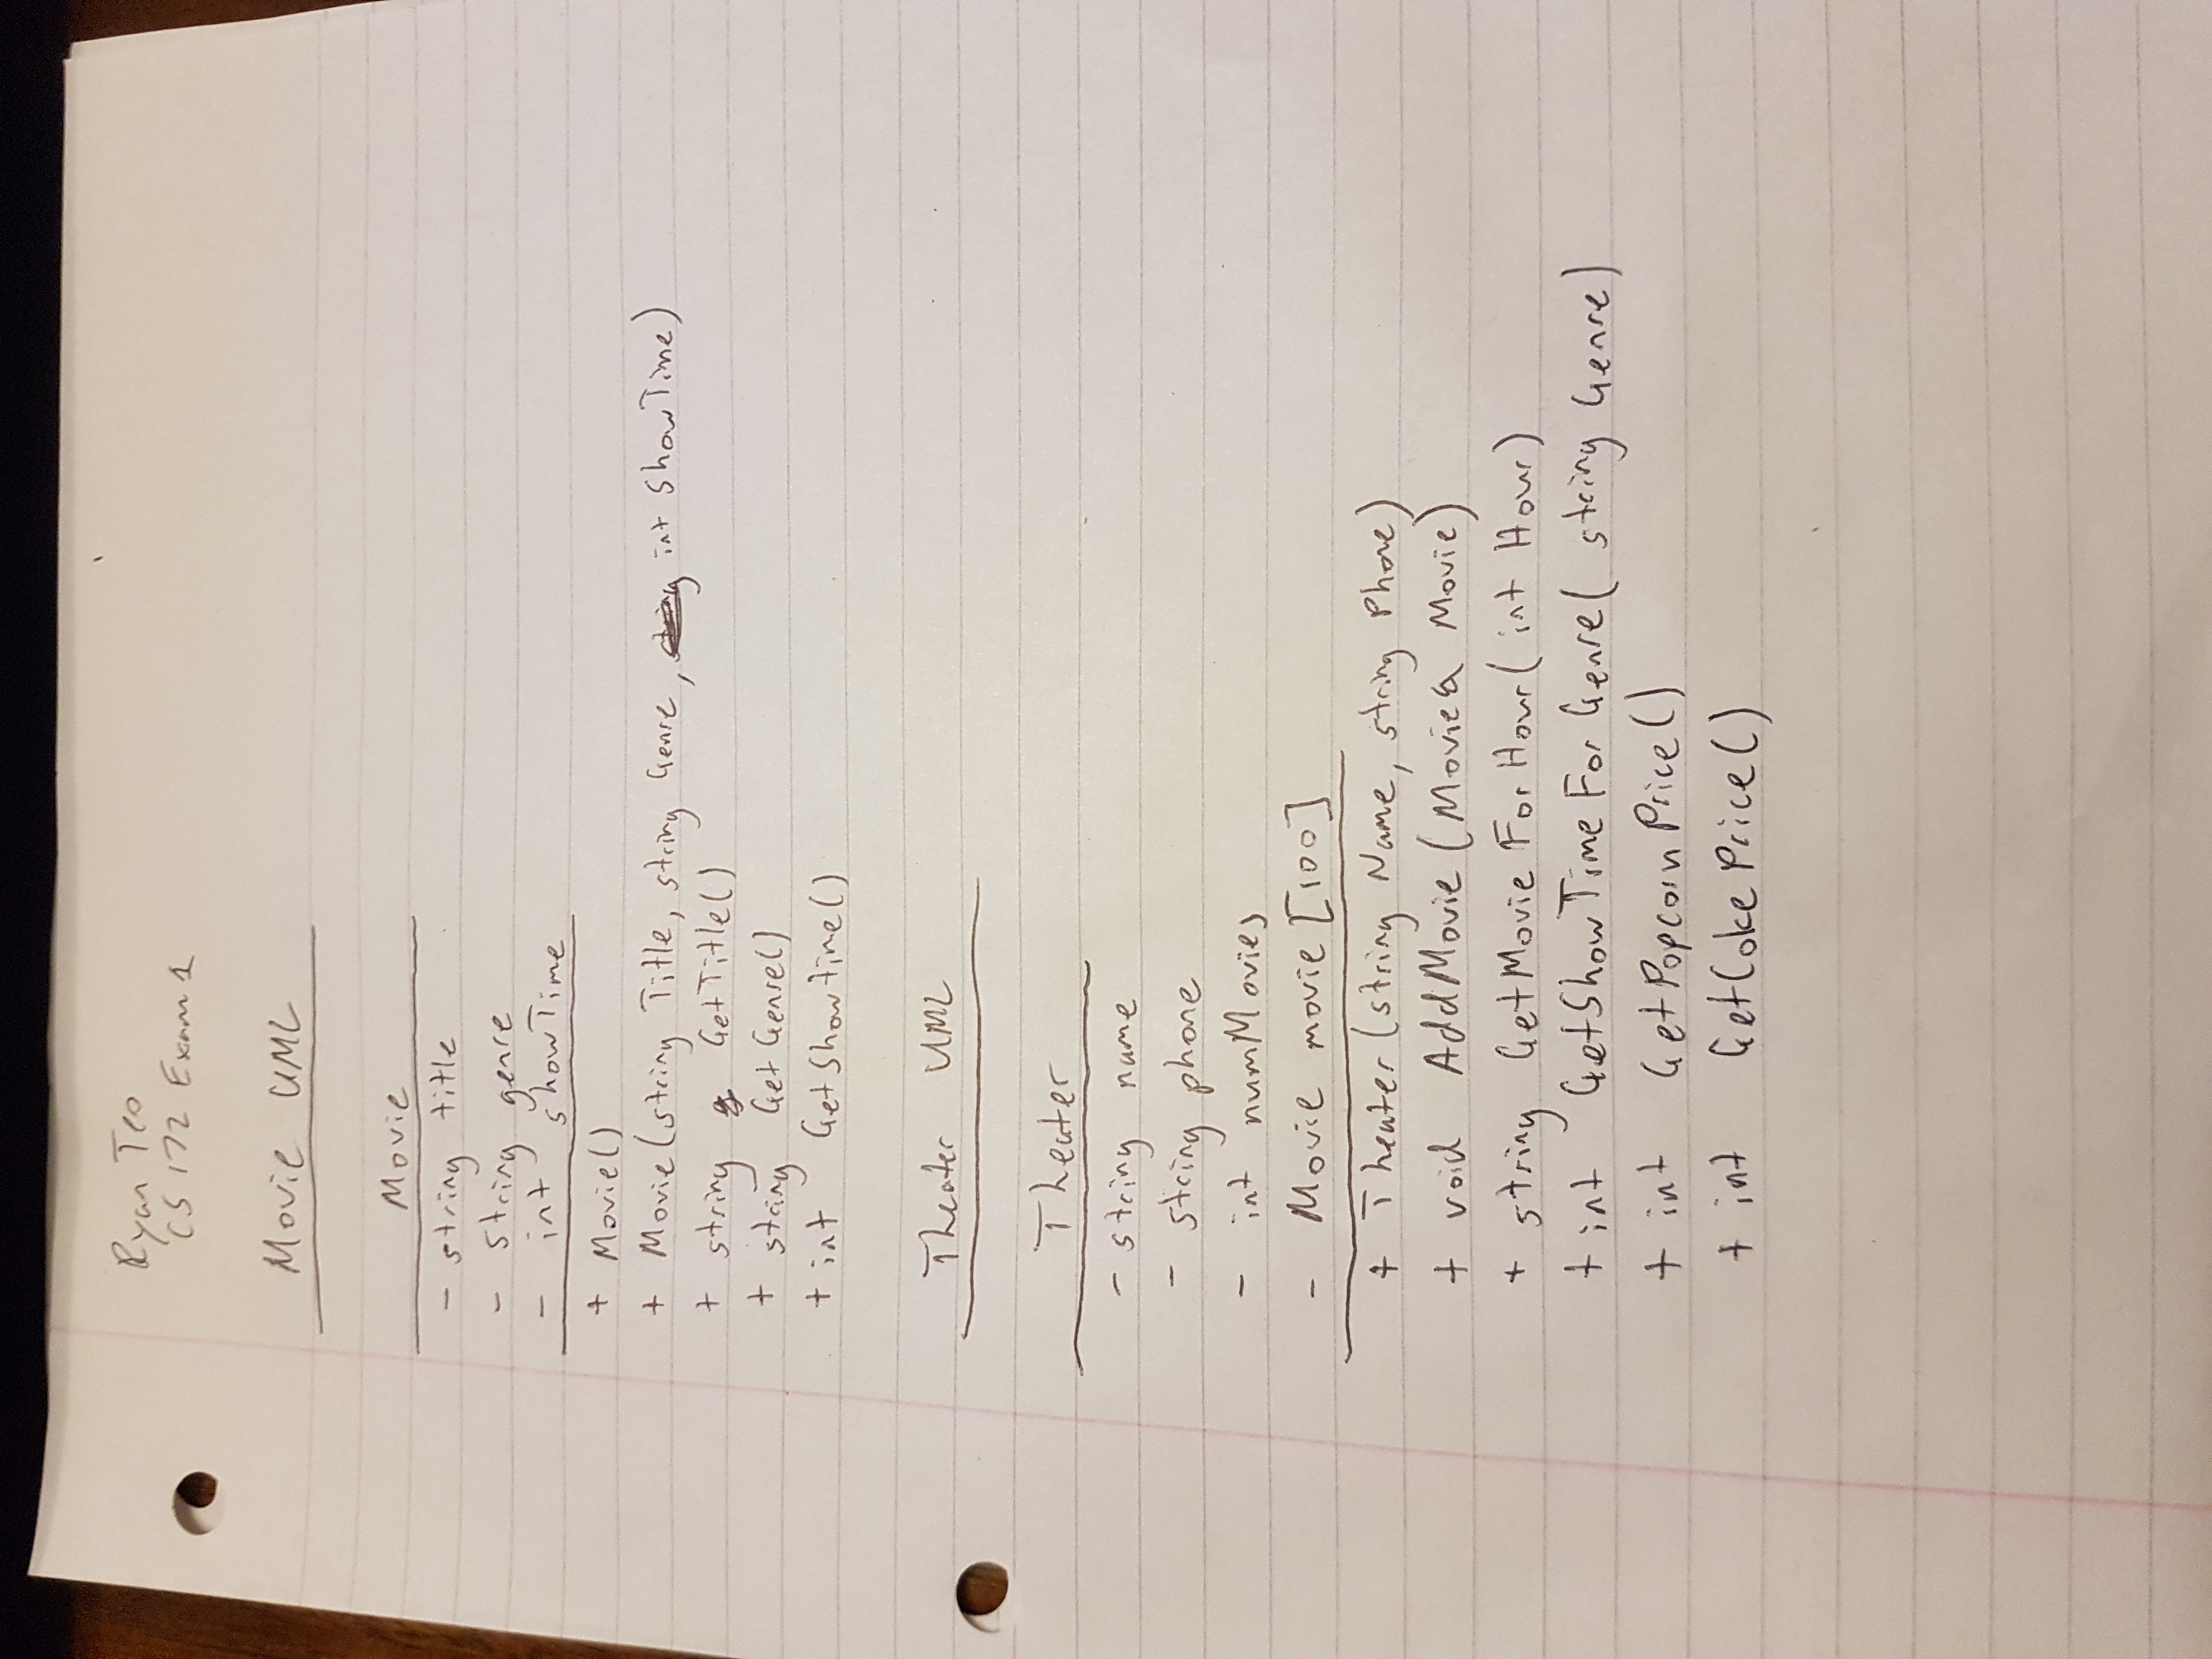 Ryan Teo
CS 172 Exam 1
Movie UML
Movie
- string title
- string genre
- int showTime
+ Movie()
+ Movie(string Title, string Genre, int ShowTime)
+ string GetTitle()
+ string GetGenre()
+ int GetShowtime()
Theater UML
Theater
- string name
- string phone
- int numMovies
- Movie movie [100]
+ Theater (string Name, string Phone)
+ void AddMovie (Movie& Movie)
+ string GetMovieForHour( int Hour)
+ int GetShowTimeForGenre( string Genre)
+ int GetPopcornPrice()
+ int GetCokePrice()